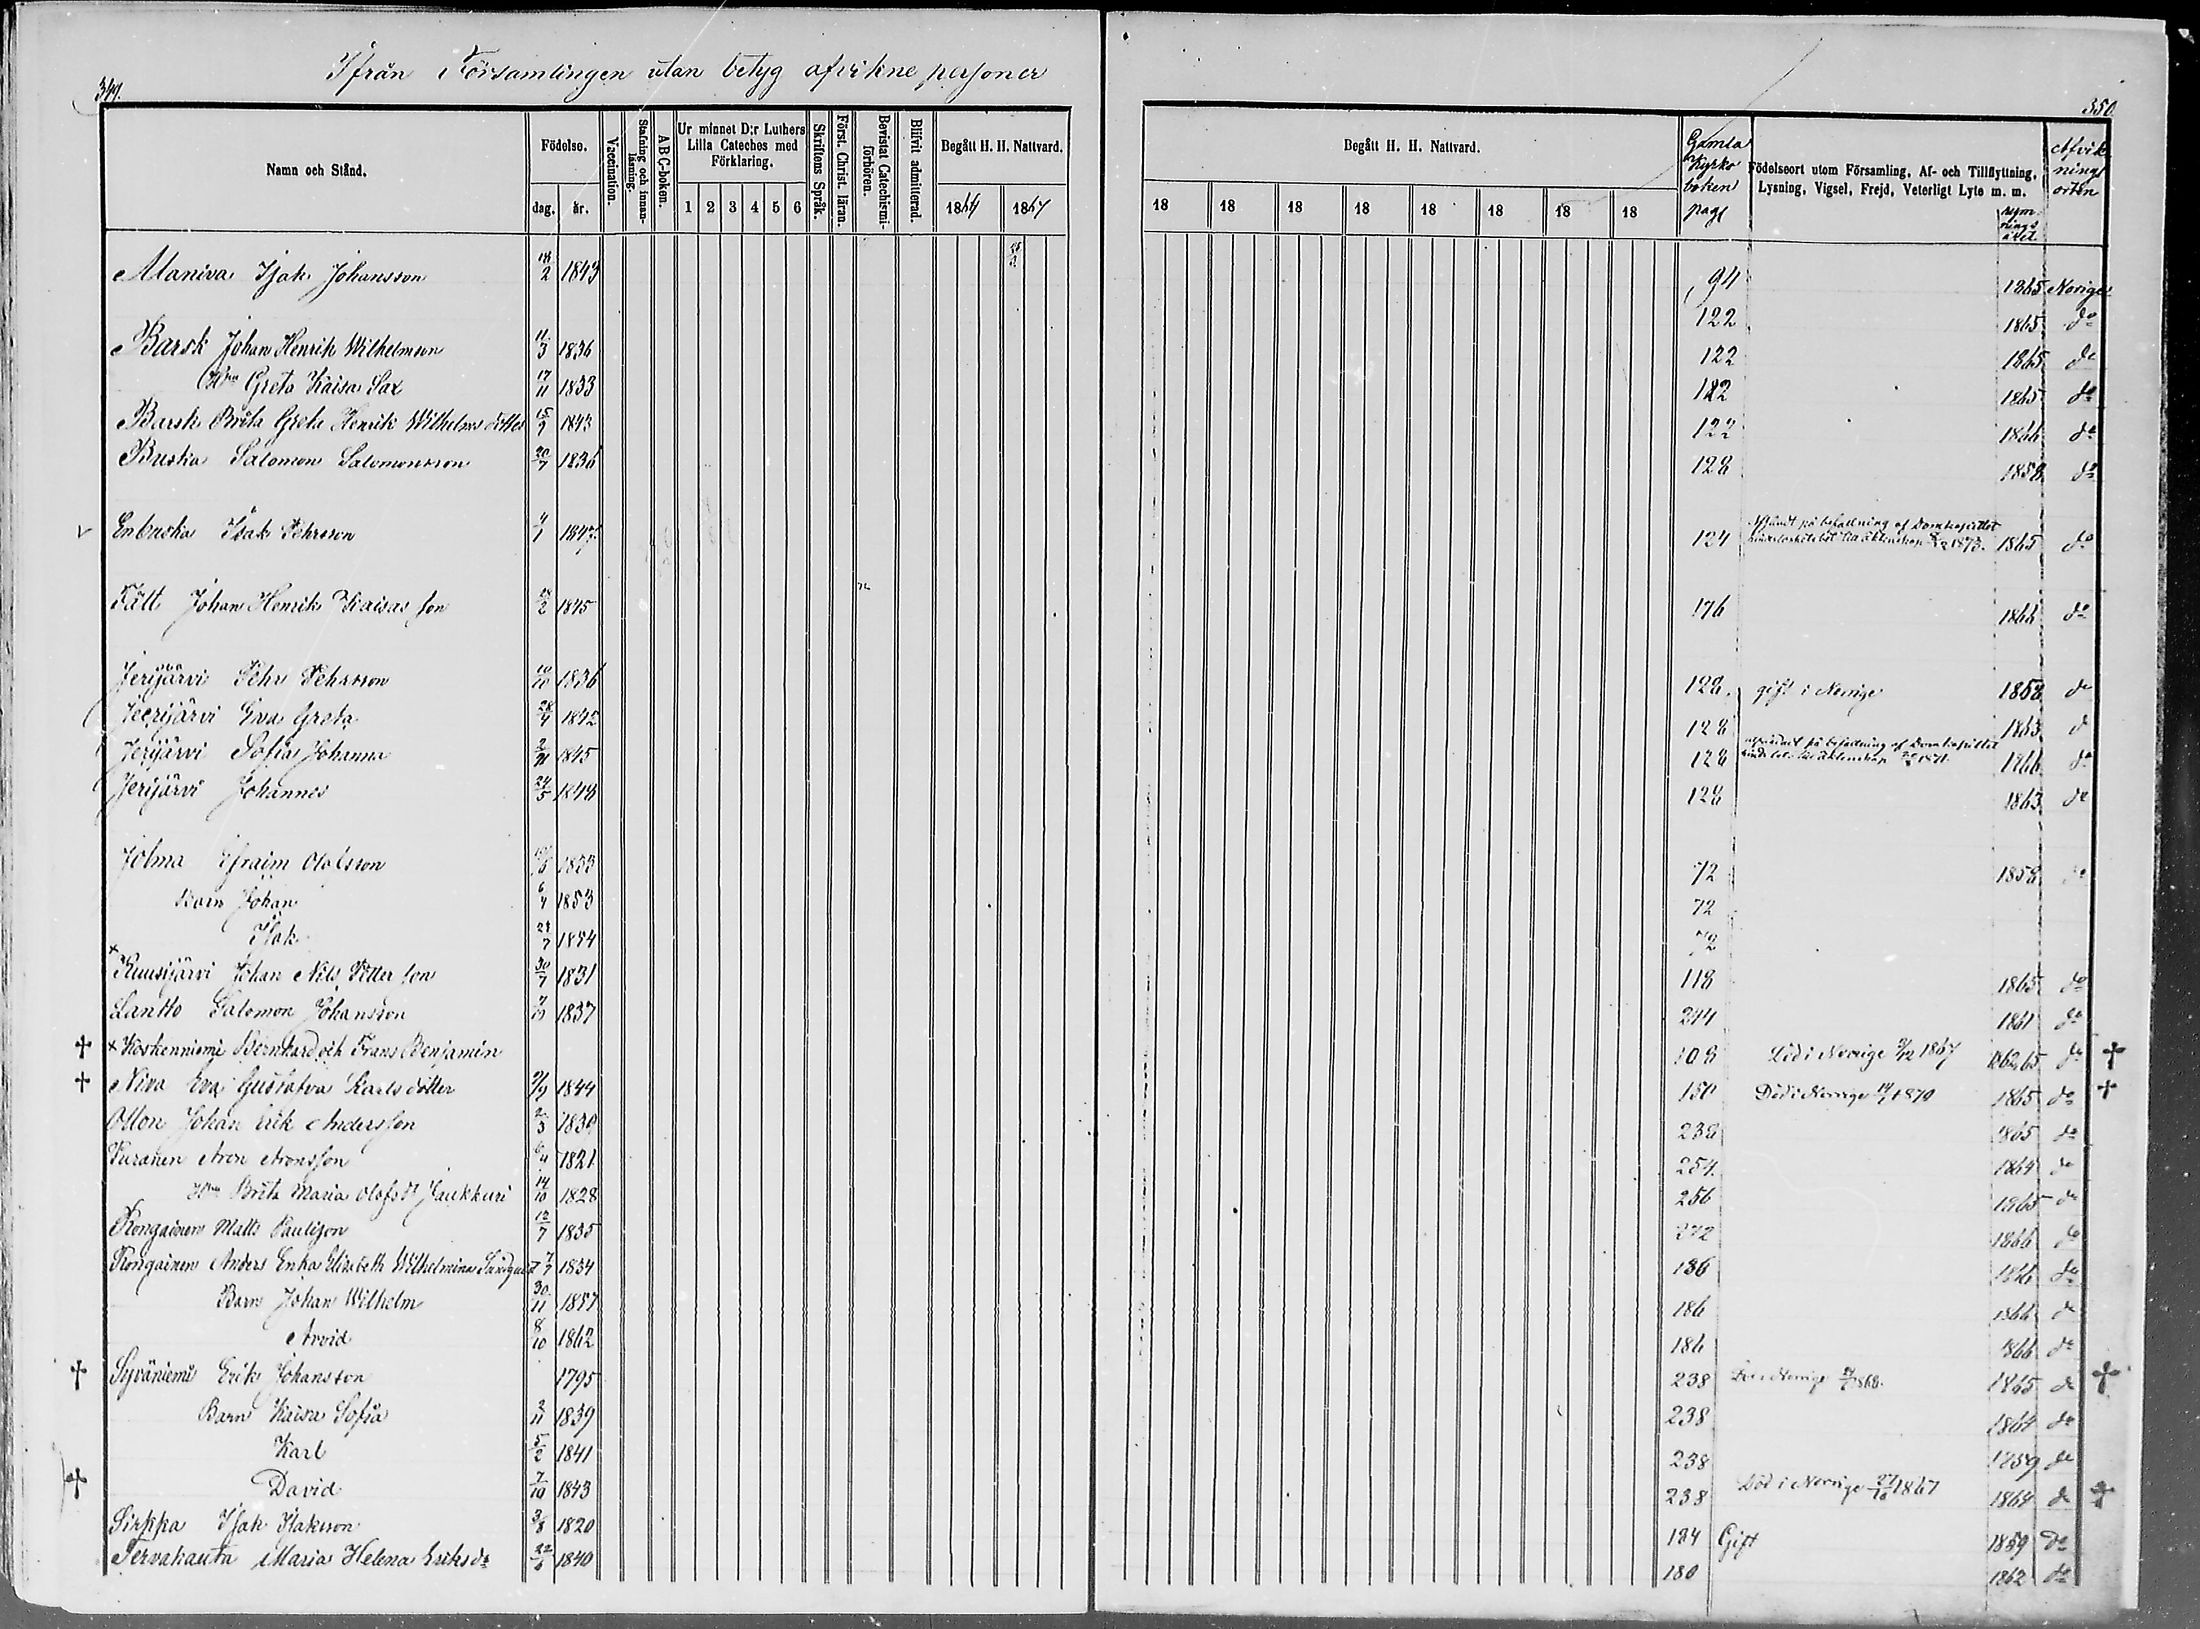 Ifrån Församlingen utan betyg afvikne personer
349.
350
Namn och Stånd.
Födelse.
dag. år.
Vaccination.
Stafning och innan-läsning.
ABC-boken.
Ur minnet D:r Luthers Lilla Cateches med Förklaring.
1 2 3 4 5 6
Skriftens Språk.
Först. Christ. läran.
Bevistat Catechismi-förhören.
Blifvit admitterad.
Begått H. H. Nattvard.
1867
Begått H. H. Nattvard.
18 18 18 18 18 18 18 18
Gamla Kyrko boken pag
Födelseort utom Församling, Af- och Tillflyttning, Lysning, Vigsel, Frejd, Veterligt Lyte m. m.
rymnings året
Afviknings orten
Alaniva Isak Johansson 2 1843 94 1865 Norige
122 1865 do
Barsk Johan Henrik Wilhelmson 11/3 1836 122 1865 do
Hu Greta Kaisa Sax 17/11 1833 122 1865 do
Barsk Brita Greta Henrik Wilhelms dotter 15/7 1843 122 1866 do
Buska Salomon Salomonsson 20/7 1836 128 1858 do
Enbuska Isak Pehrsson 1847 124 på befallning af Domkapitlet 1865 do
Fält Johan Henrik Kaisas son 2 1845 176 1866 do
Jerijärvi Pehr Pehrsson 10/10 1836 128 gift i Norrige 1858 do
Jeerijärvi Eva Greta 28/4 1842 128 1863 d
Jerijärvi Sofia Johanna 2/11 1845 128 på befallning af Domkapitlet 1866 do
Jerijärvi Johannes 24/5 1848 128 1863 do
Jolma Efraim Olofsson 72 1858 do
Barn Johan 6/4 1853 72
Isak 7 1854 72
× Ruusijärvi Johan Nils Petter son 30/7 1831 118 1865 do
Lantto Salomon Johansson 1837 244 1861 do
✝ × Koskenniemi Bernhard och Frans Benjamin 108 Död i Norrige 9/12 1867 1862,65 do ✝
✝ Niva Eva Gustafva Karls dotter 9/9 1844 150 Död i Norrige 1870 1865 do ✝
Olton Johan Erik Andersson 2/3 1839 238 1865 do
Puranen Aron Aronsson 6/4 1821 254 1864 do
Hu Brita Maria Olofs Dr Jaukkuri 14/10 1828 256 1865 do
Rongainen Matts Paulison 12/7 1835 272 1866 do
Rongainen Anders Enka Elisabeth Wilhelmina 7/7 1834 186 1866 do
Barn Johan Wilhelm 30/11 1857 186 1866 do
Arvid 8/10 1862 186 1866 do
✝ Syväniemi Erik Johansson 1795 238 Död i Norrige 1868. 1865 do ✝
Barn Kaisa Sofia 2/11 1839 238 1864 do
Karl 5/2 1841 238 1859 do
✝ David 7/10 1843 238 Död i Norrige 27/10 1867 1864 do ✝
Sirkka Isak Isaksson 3/8 1820 184 Gift 1859 do
Tervahauta Maria Helena Eriksdr 22/6 1840 180 1862 do